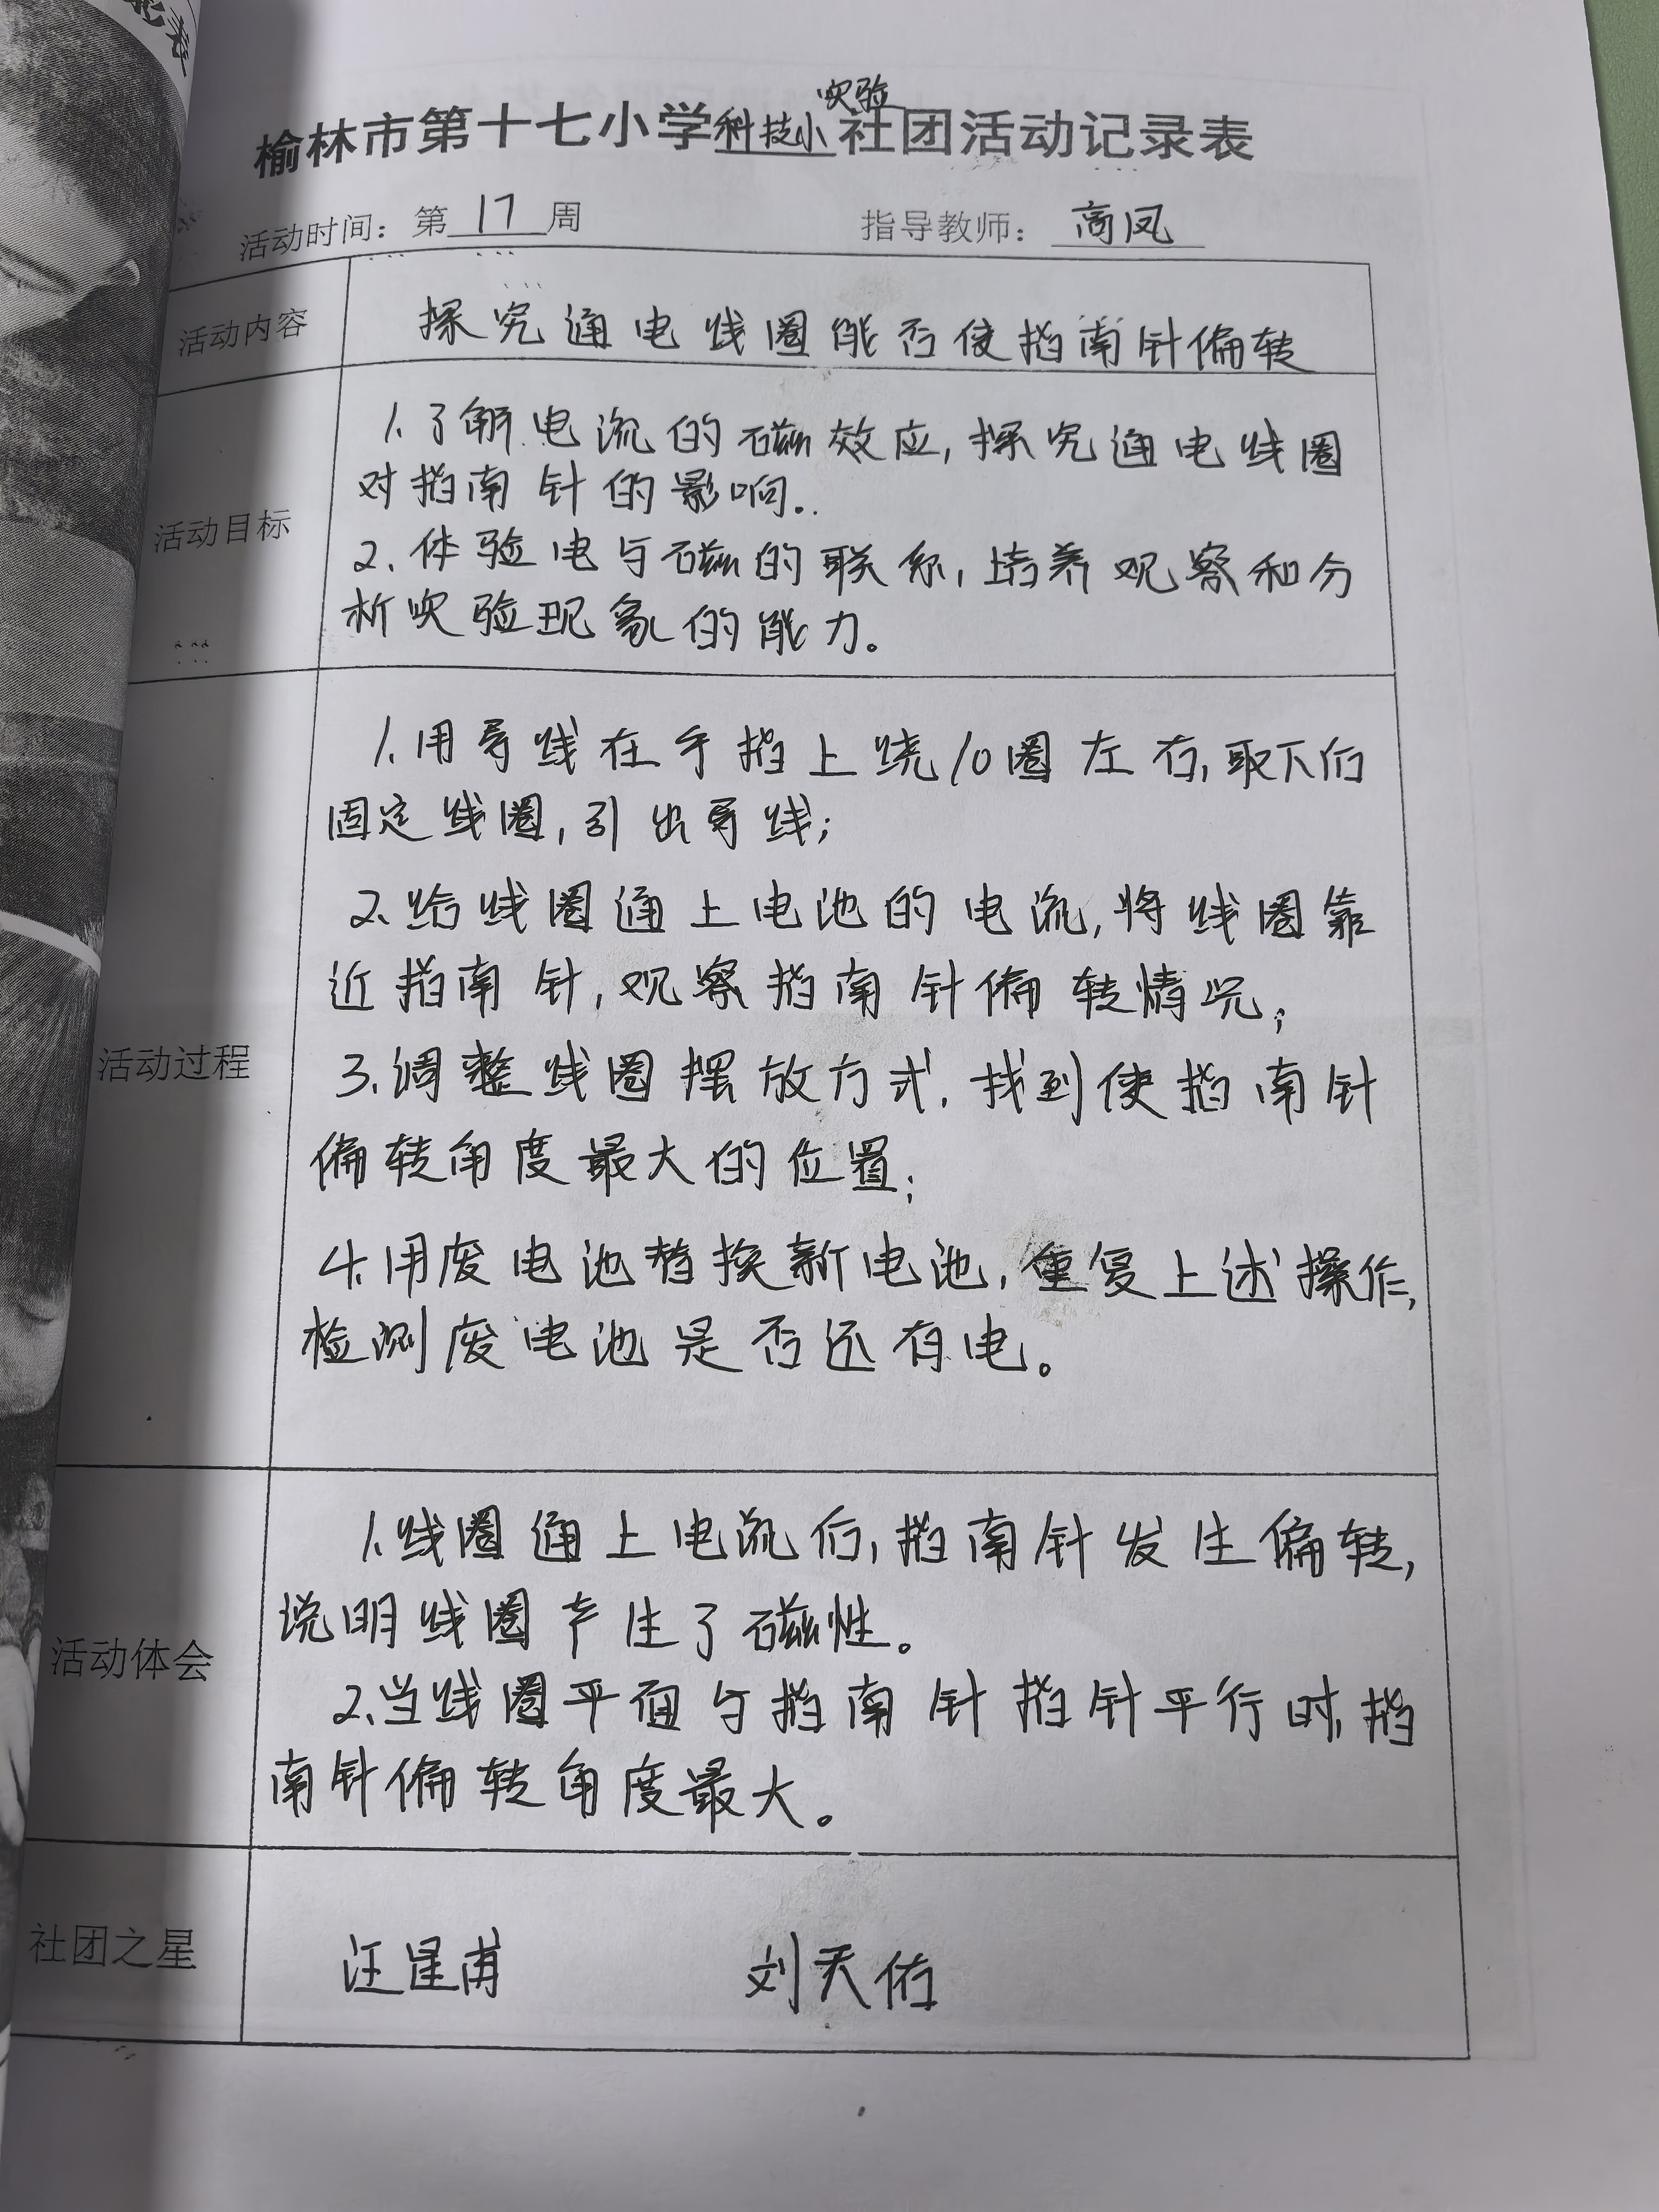 实验
榆林市第十七小学科技小社团活动记录表
活动时间：第 17 周 指导教师：商凤
活动内容
探究通电线圈能否使指南针偏转
活动目标
1.了解电流的磁效应,探究通电线圈
对指南针的影响.
2.体验电与磁的联系,培养观察和分
析实验现象的能力。
活动过程
1.用导线在手指上绕10圈左右,取下后
固定线圈,引出导线;
2.给线圈通上电池的电流,将线圈靠
近指南针,观察指南针偏转情况;
3.调整线圈摆放方式,找到使指南针
偏转角度最大的位置;
4.用废电池替换新电池,重复上述操作,
检测废电池是否还有电。
活动体会
1.线圈通上电流后,指南针发生偏转,
说明线圈产生了磁性。
2.当线圈平面与指南针指针平行时,指
南针偏转角度最大。
社团之星
汪星甫 刘天佑